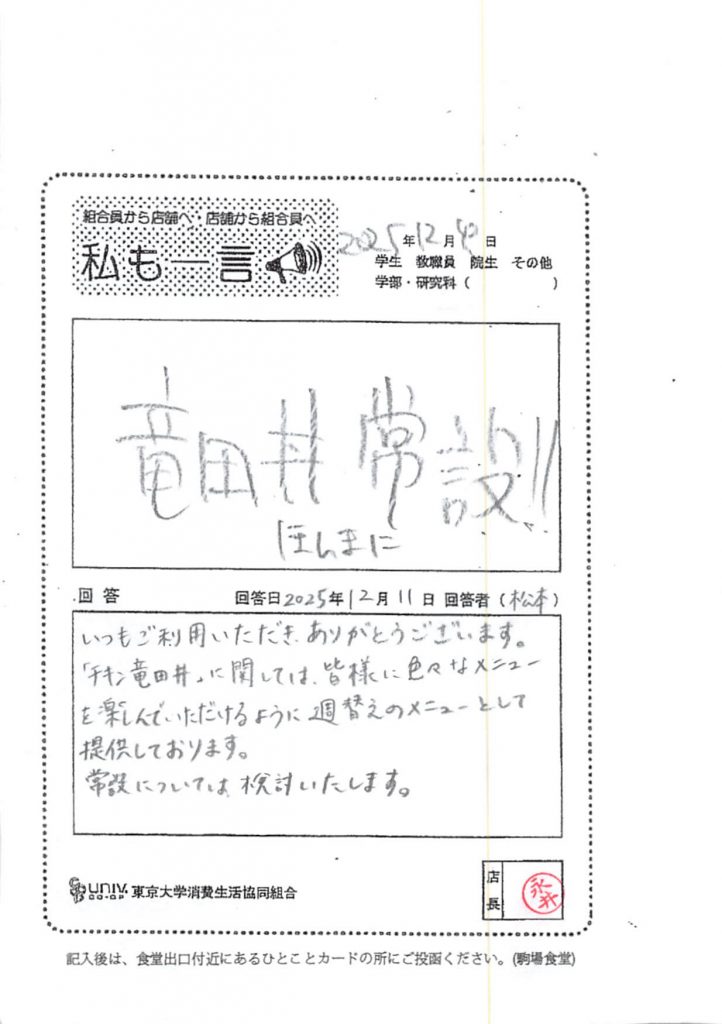 組合員から店舗へ・店舗から組合員へ
私も一言
2025年12月4日
学生 教職員 院生 その他
学部・研究科( )
竜田丼 常設!!
ほんまに
回答 回答日2025年12月11日 回答者(松本)
いつもご利用いただき、ありがとうございます。
「チキン竜田丼」に関しては、皆様に色々なメニュー
を楽しんでいただけるように週替えのメニューとして
提供しております。
常設については、検討いたします。
UNIV. CO-OP 東京大学消費生活協同組合
店長
永井
記入後は、食堂出口付近にあるひとことカードの所にご投函ください。(駒場食堂)